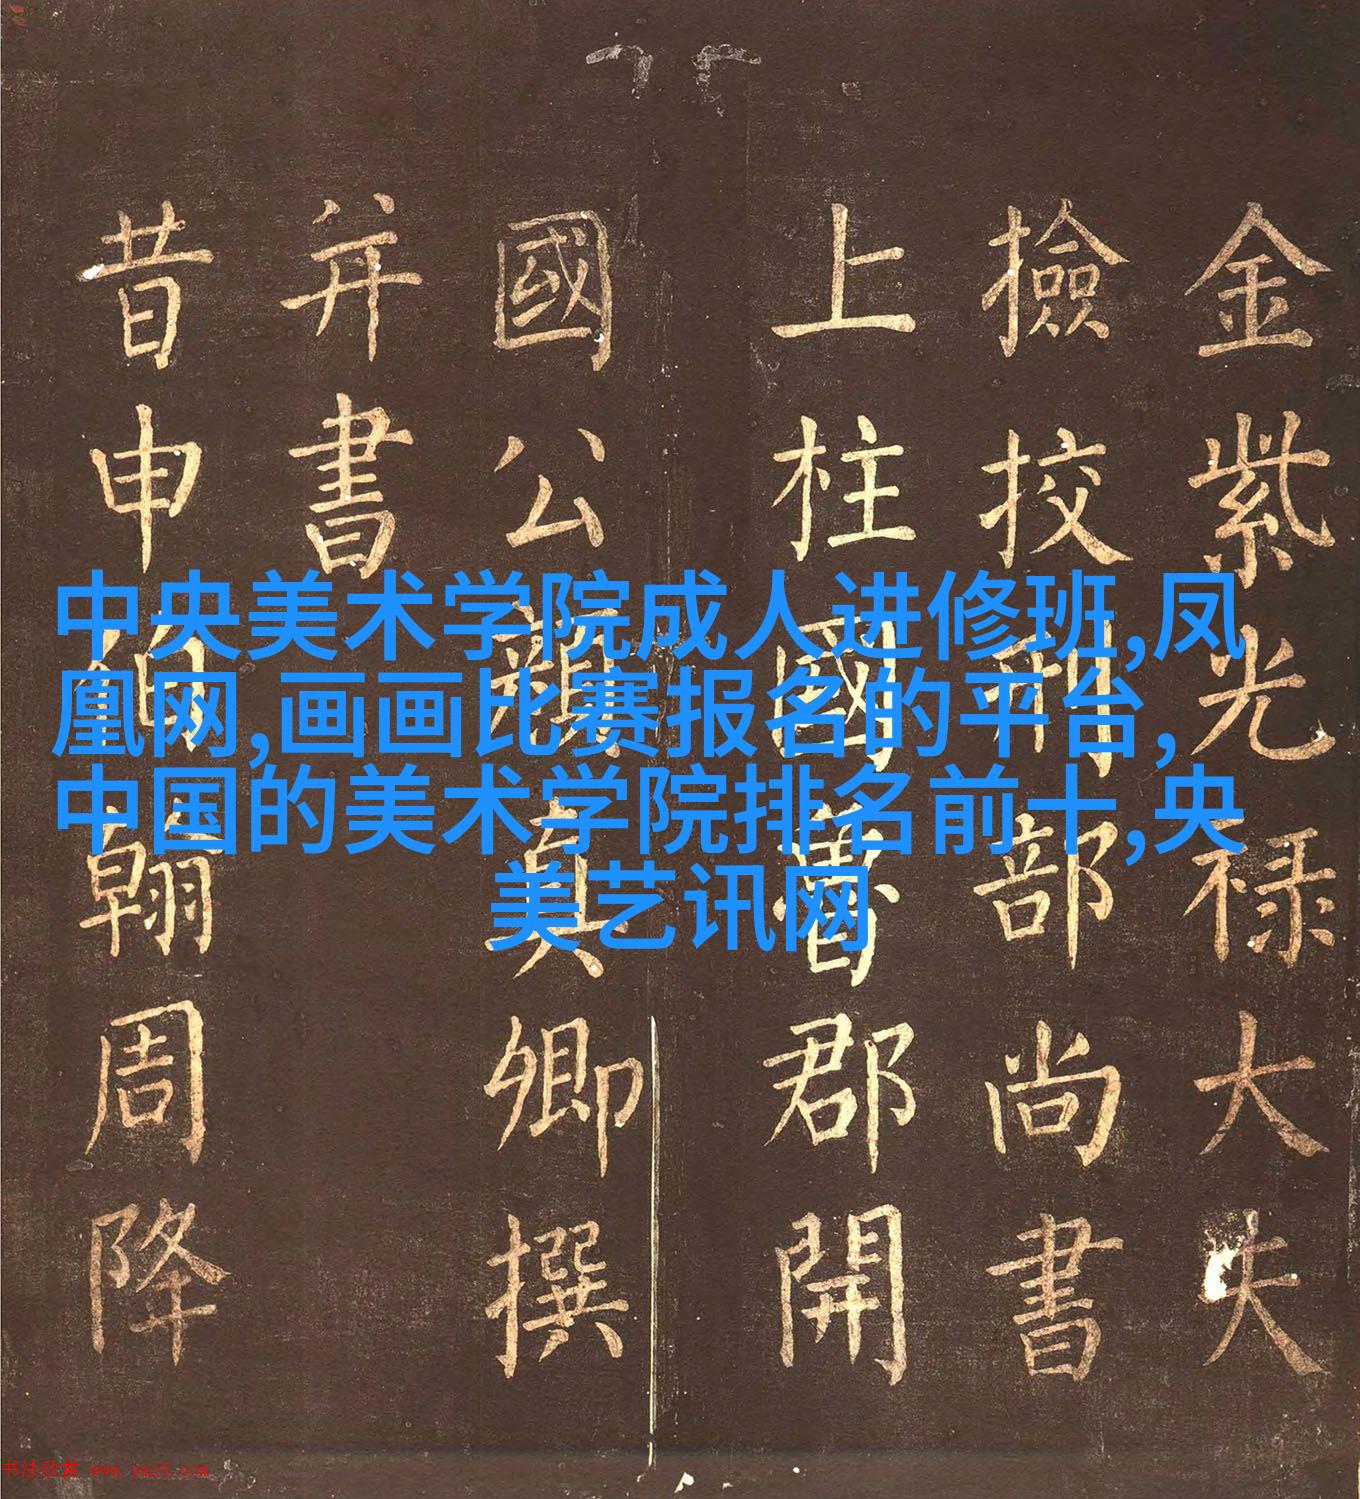 金紫光禄大夫
撿挍刑部尚書
上柱國魯郡開
國公顏真卿撰
并書
昔申伯翰周降
中央美术学院成人进修班,凤
凰网,画画比赛报名的平台,
中国的美术学院排名前十,央
美艺讯网
书法欣赏 www.yac8.com